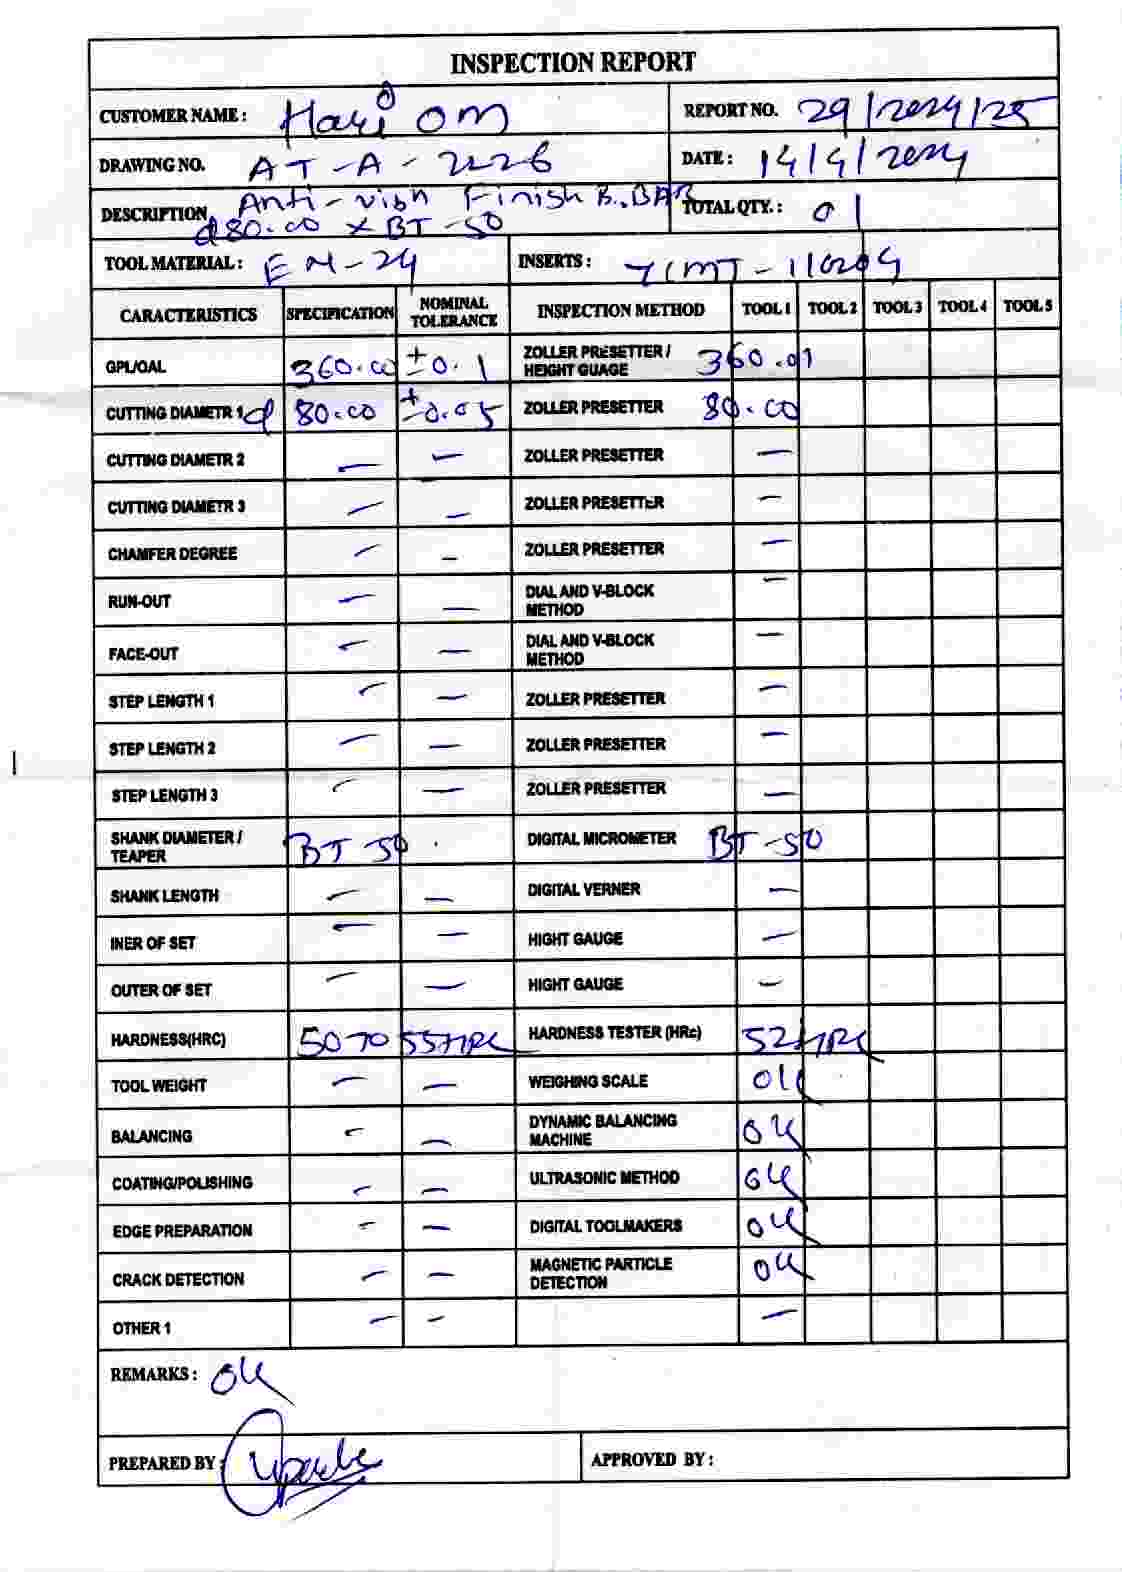 INSPECTION REPORT
CUSTOMER NAME : Hari OM REPORT NO. 29/2024/25
DRAWING NO. AT-A-2226 DATE : 14/9/2024
DESCRIPTION Anti-vibn Finish B.BAR TOTAL QTY. : 01
d80.00 x BT-50
TOOL MATERIAL : EN-24 INSERTS : TCMT-110204
CARACTERISTICS SPECIFICATION NOMINAL TOLERANCE INSPECTION METHOD TOOL 1 TOOL 2 TOOL 3 TOOL 4 TOOL 5
GPL/OAL 360.00 ±0.1 ZOLLER PRESETTER / HEIGHT GUAGE 360.01
CUTTING DIAMETR 1 d 80.00 ±0.05 ZOLLER PRESETTER 80.00
CUTTING DIAMETR 2 — — ZOLLER PRESETTER —
CUTTING DIAMETR 3 — — ZOLLER PRESETTER —
CHAMFER DEGREE — — ZOLLER PRESETTER —
RUN-OUT — — DIAL AND V-BLOCK METHOD —
FACE-OUT — — DIAL AND V-BLOCK METHOD —
STEP LENGTH 1 — — ZOLLER PRESETTER —
STEP LENGTH 2 — — ZOLLER PRESETTER —
STEP LENGTH 3 — — ZOLLER PRESETTER —
SHANK DIAMETER / TEAPER BT 50 DIGITAL MICROMETER BT-50
SHANK LENGTH — — DIGITAL VERNER —
INER OF SET — — HIGHT GAUGE —
OUTER OF SET — — HIGHT GAUGE —
HARDNESS(HRC) 50 TO 55HRC HARDNESS TESTER (HRc) 52HRC
TOOL WEIGHT — — WEIGHING SCALE OK
BALANCING — — DYNAMIC BALANCING MACHINE OK
COATING/POLISHING — — ULTRASONIC METHOD OK
EDGE PREPARATION — — DIGITAL TOOLMAKERS OK
CRACK DETECTION — — MAGNETIC PARTICLE DETECTION OK
OTHER 1 — — —
REMARKS : OK
PREPARED BY : APPROVED BY :